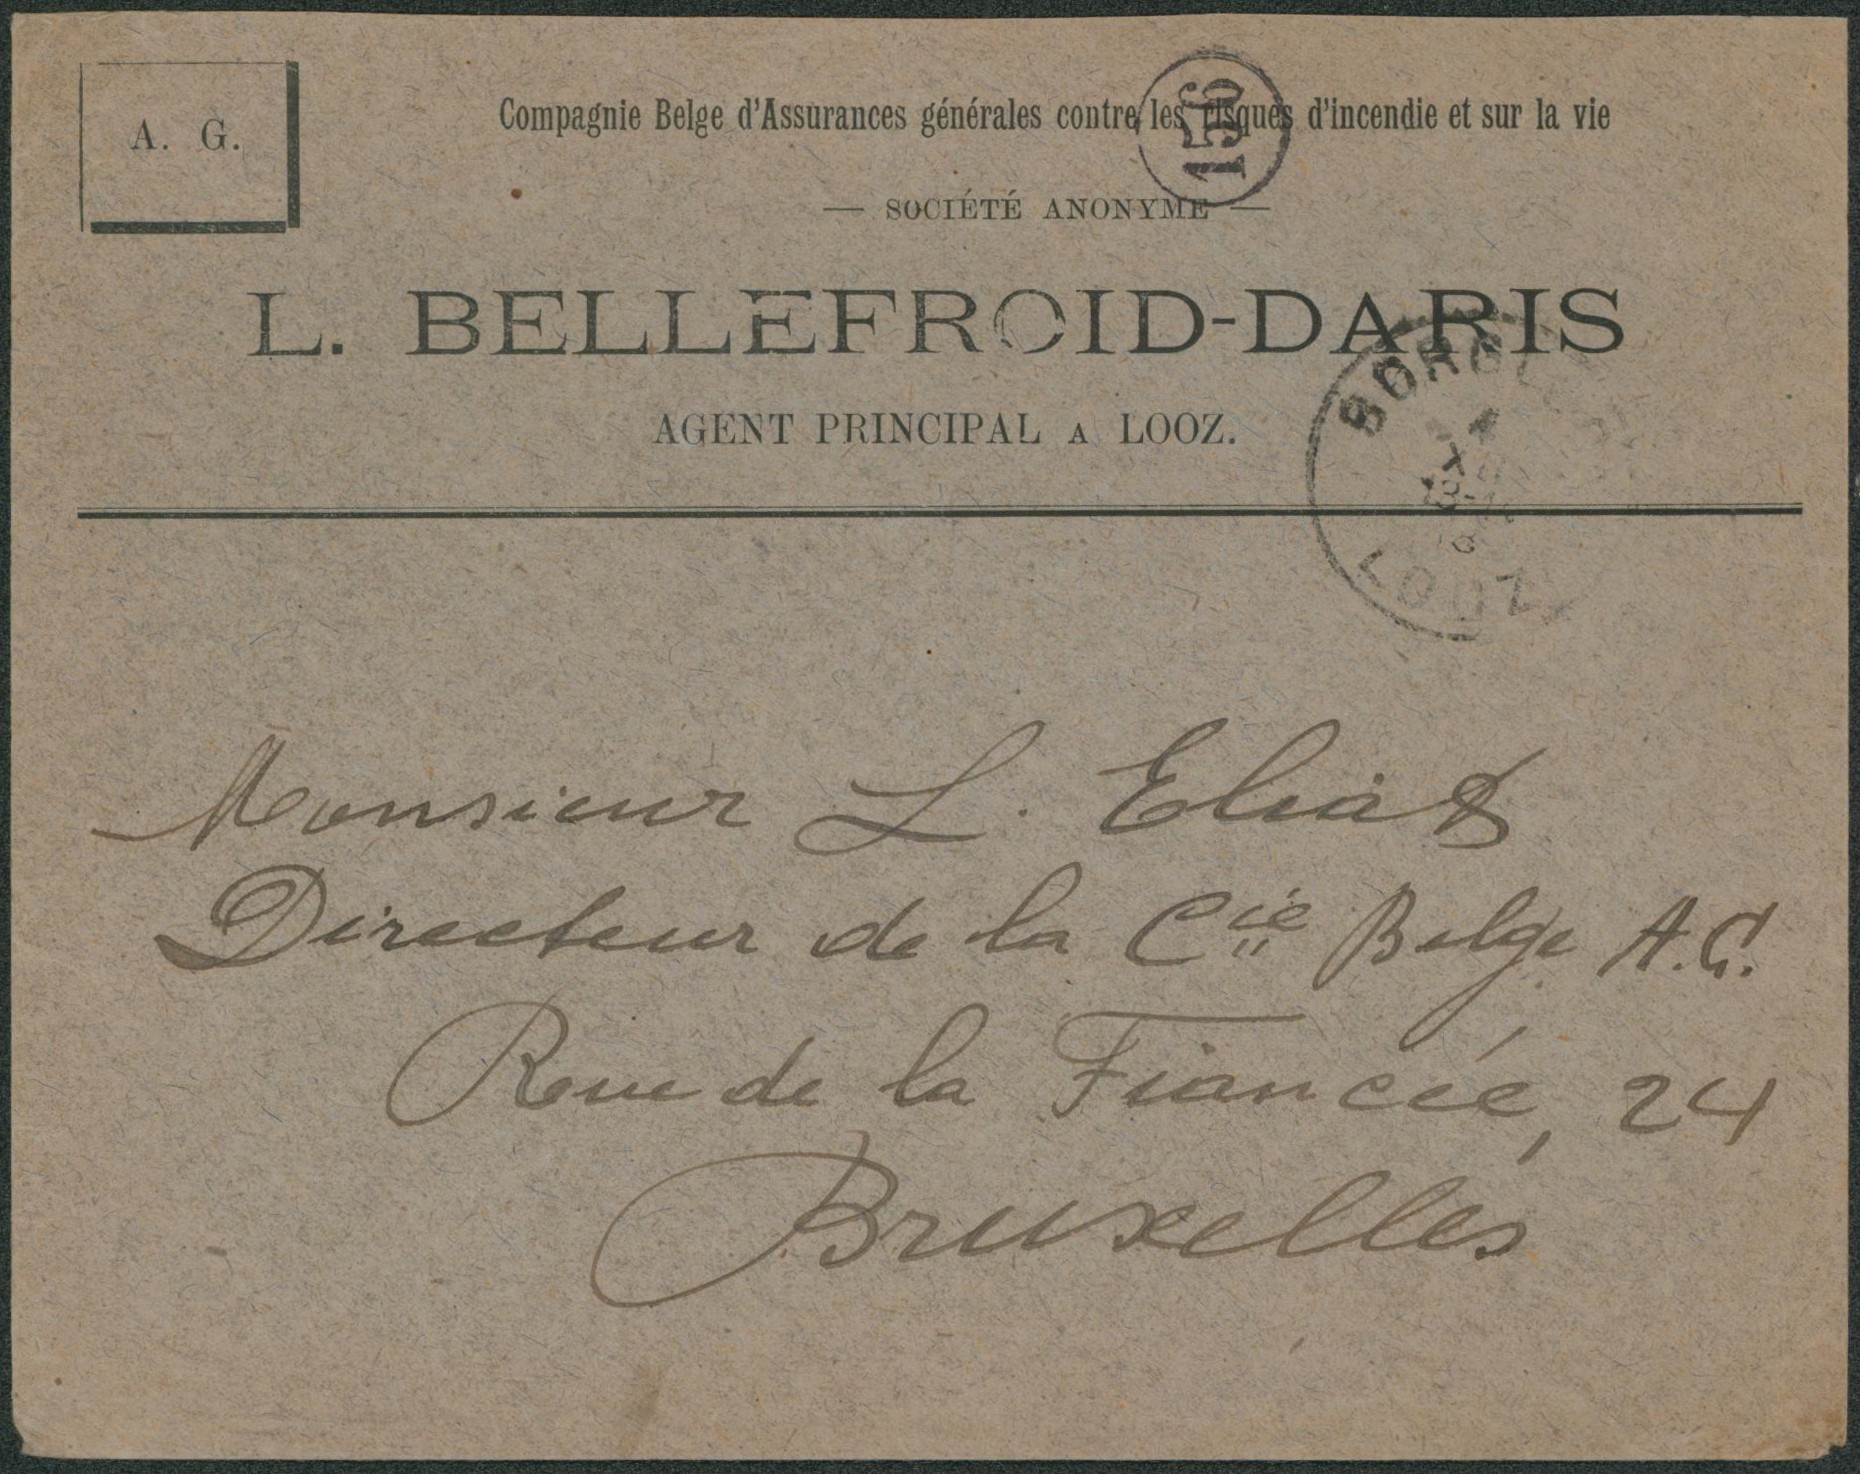 A. G.
Compagnie Belge d'Assurances générales contre les risques d'incendie et sur la vie
156
— SOCIÉTÉ ANONYME —
L. BELLEFROID-DARIS
AGENT PRINCIPAL A LOOZ.
LOOZ
Monsieur L. Elias
Directeur de la Cie Belge A.G.
Rue de la Fiancée, 24
Bruxelles